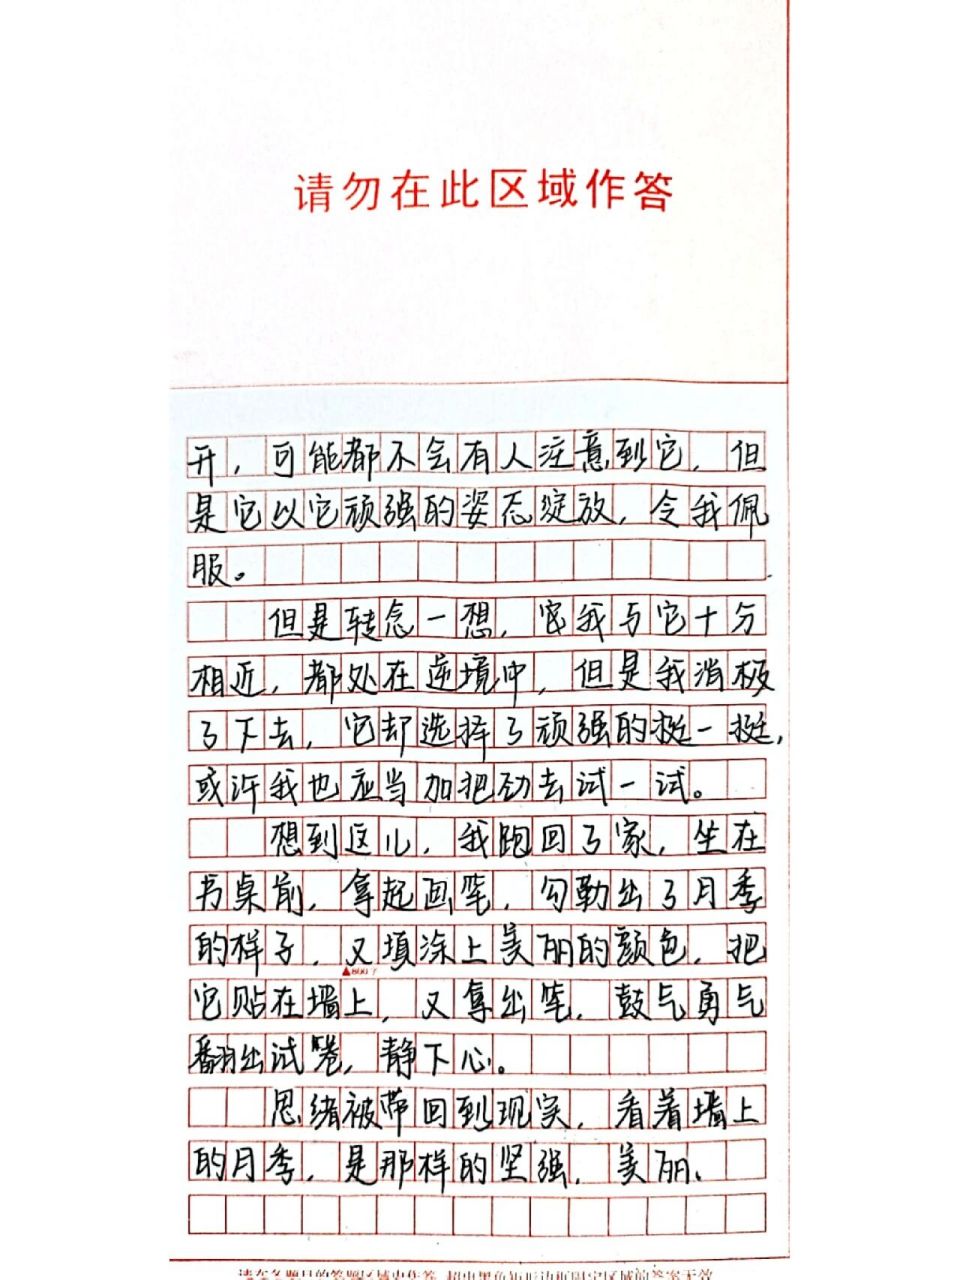 请勿在此区域作答
开,可能都不会有人注意到它,但
是它以它顽强的姿态绽放,令我佩
服。
但是转念一想,它我与它十分
相近,都处在逆境中,但是我消极
了下去,它却选择了顽强的挺一挺,
或许我也应当加把劲去试一试。
想到这儿,我跑回了家,坐在
书桌前,拿起画笔,勾勒出了月季
的样子,又填涂上美丽的颜色,把
▲800字
它贴在墙上,又拿出笔,鼓气勇气
翻出试卷,静下心。
思绪被带回到现实,看着墙上
的月季,是那样的坚强,美丽、
请在各题目的答题区域内作答,超出黑色矩形边框限定区域的答案无效